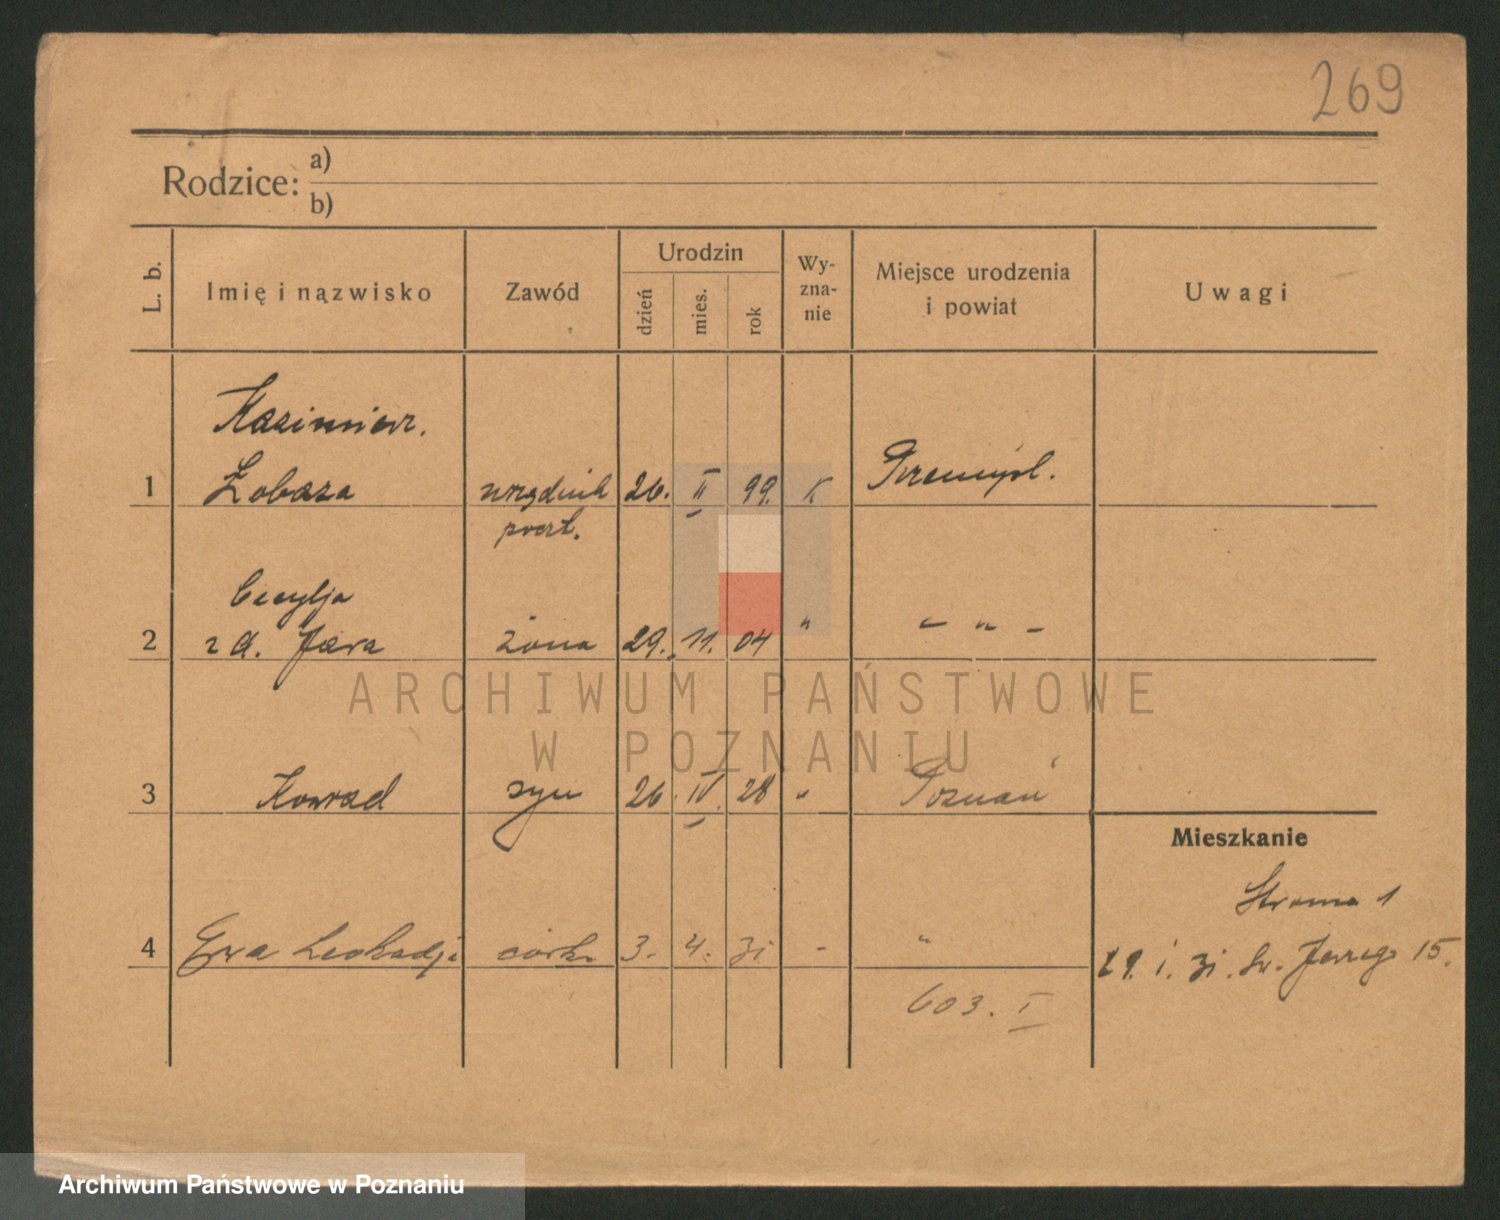 269
Rodzice: a)
b)
L. b.
Imię i nązwisko
Zawód
Urodzin
dzień
mies.
rok
Wy-
zna-
nie
Miejsce urodzenia
i powiat
Uwagi
Kazimierz.
1 Łobaza urzędnik 26. II 99. K Przemyśl.
poczt.
Cecylja
2 z d. Jara żona 29. 11. 04 " — " —
3 Konrad syn 26. IV. 28 " Poznań
Mieszkanie
Stroma 1
4 Ewa Leokadja córka 3. 4. 31 - "
29. 1. 31. Św. Jerzego 15.
603. I
ARCHIWUM PAŃSTWOWE
W POZNANIU
Archiwum Państwowe w Poznaniu